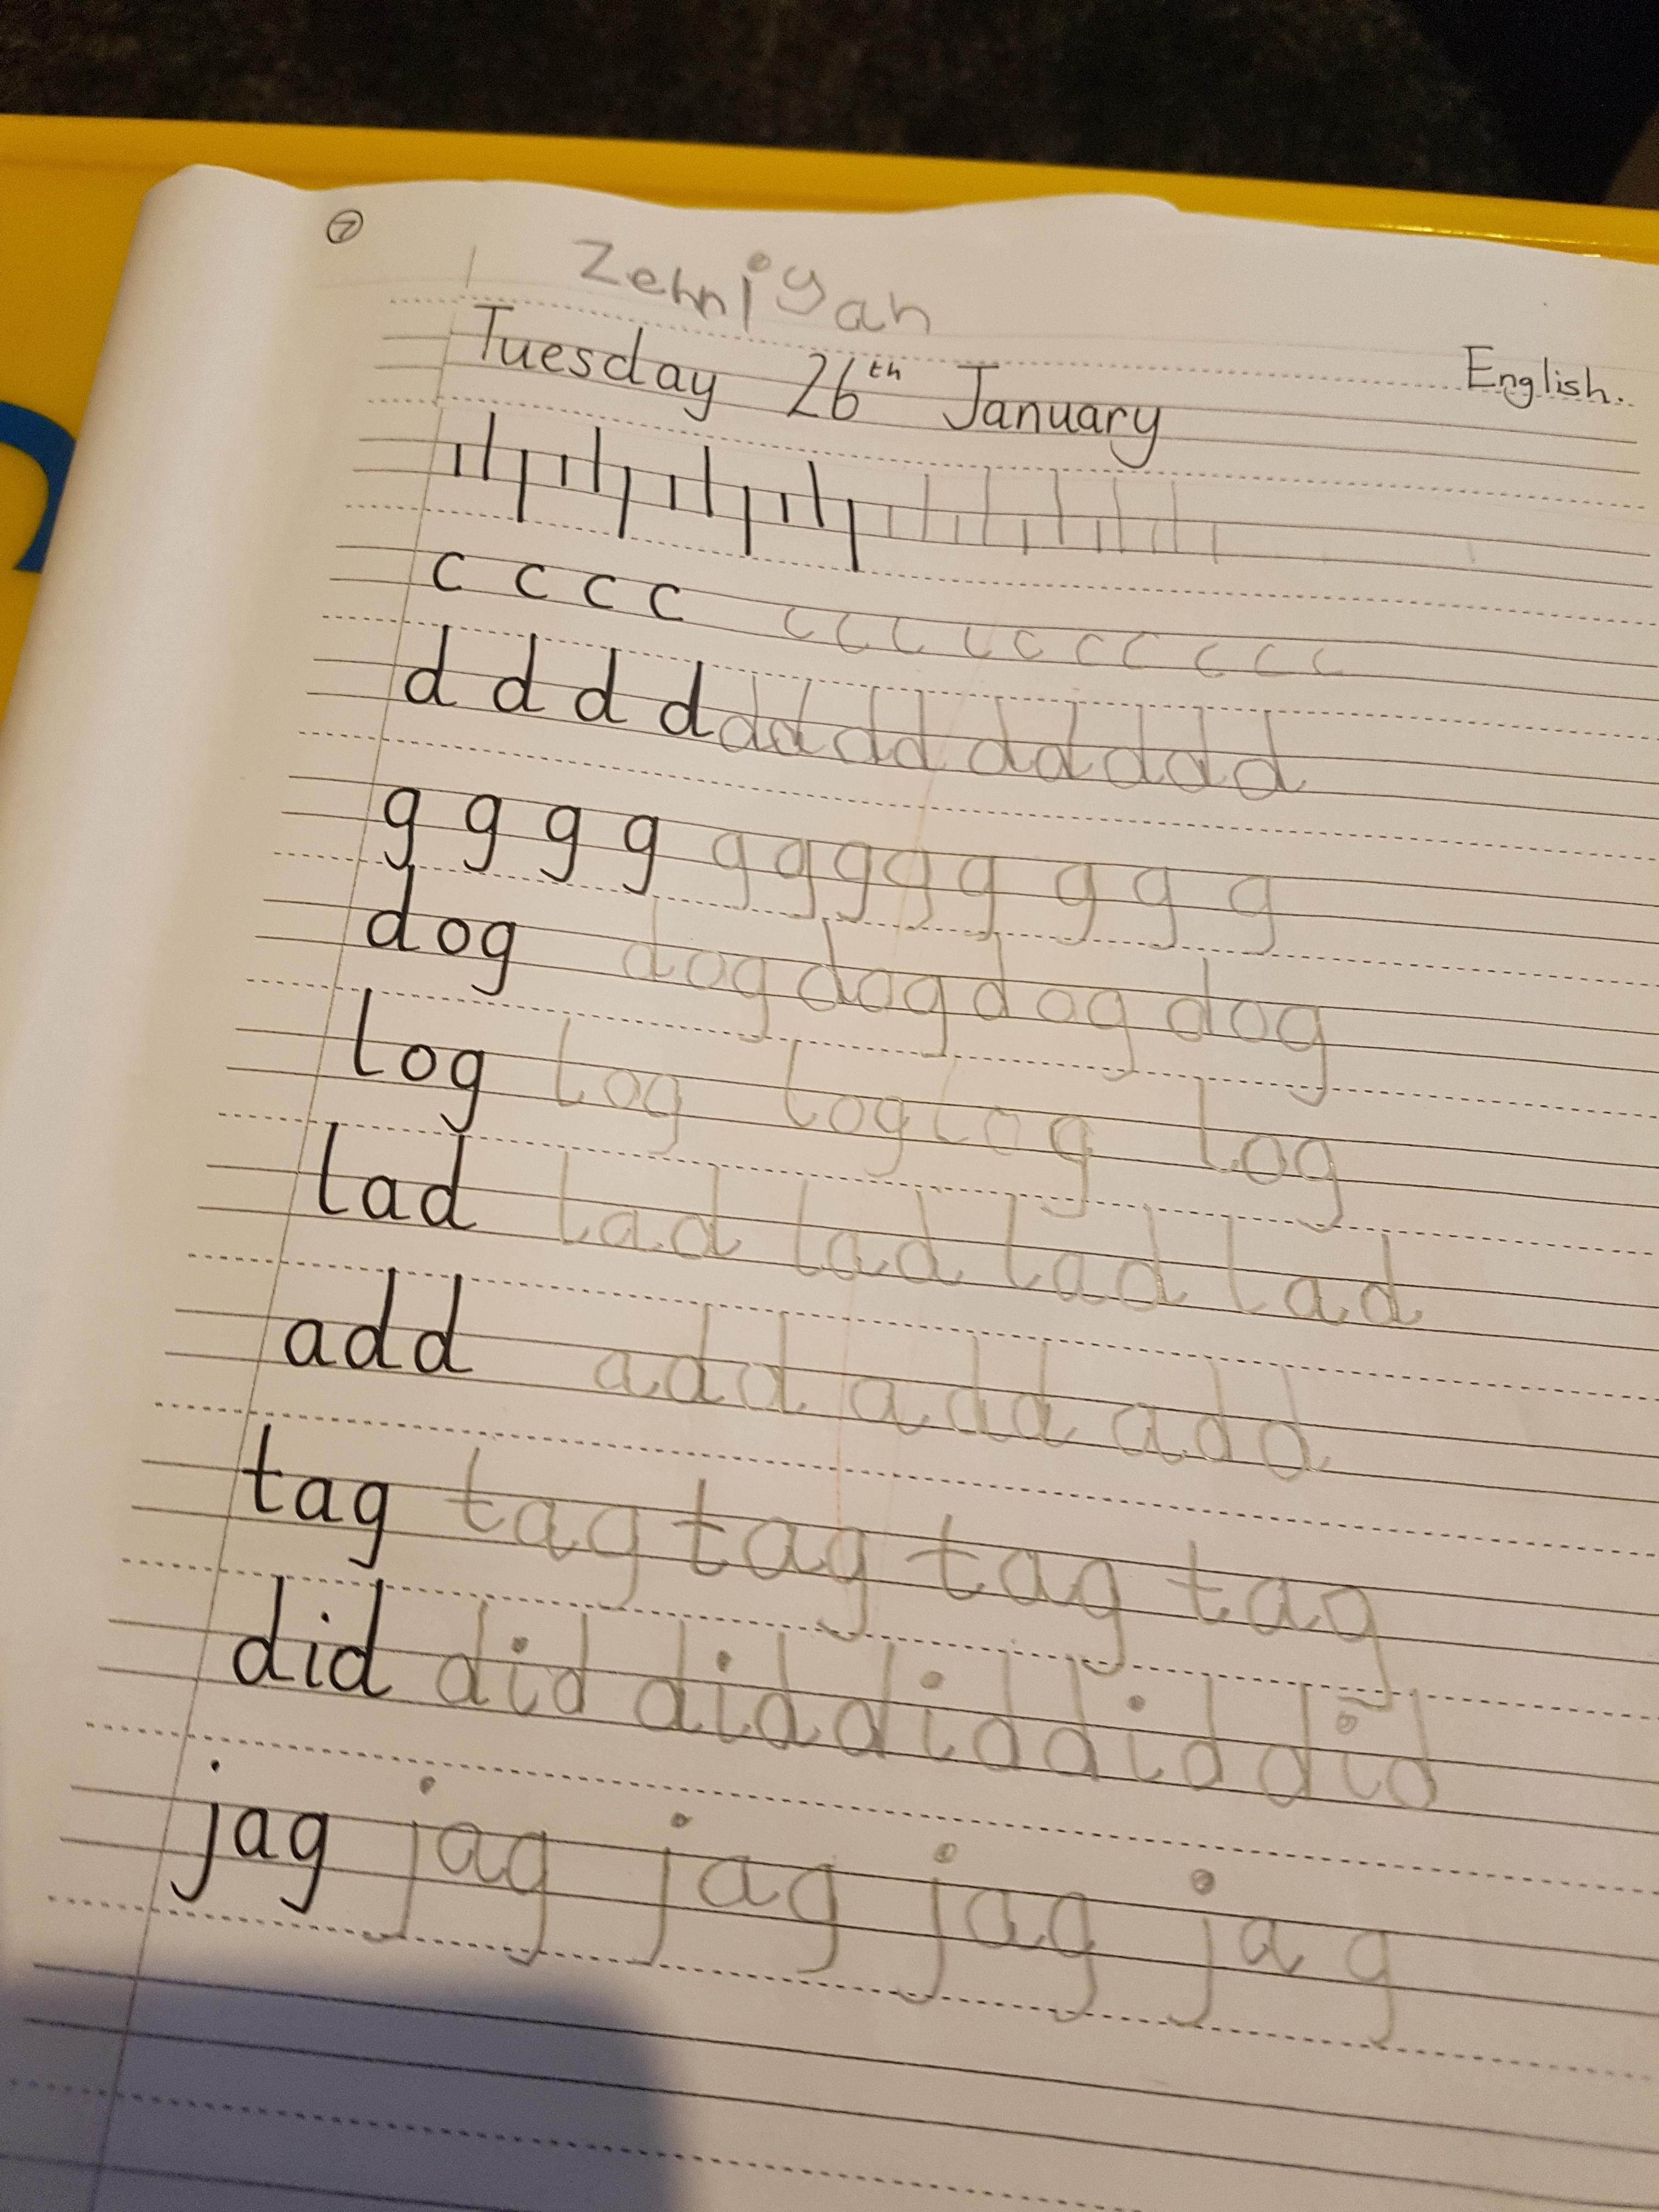 7
Zehniyah
English.
Tuesday 26th January
c c c c c c c c c c c c c c
d d d d d d d d d d d d d
g g g g g g g g g g g g
dog dog dog dog dog
log log log log log
lad lad lad lad lad
add add add add
tag tag tag tag tag
did did did did did did
jag jag jag jag jag